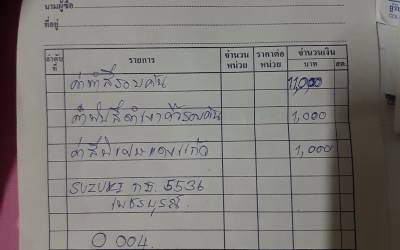 นามผู้ซื้อ
ที่อยู่
ลำดับที่ รายการ จำนวนหน่วย ราคาต่อหน่วย จำนวนเงิน
บาท สต.
ค่าทำสีรอบคัน 11,000
ค่าพ่นสีดำเงา รอบคัน 1,000
ค่าสี 1,000
SUZUKI กธ. 5536
เพชรบูรณ์
0 004